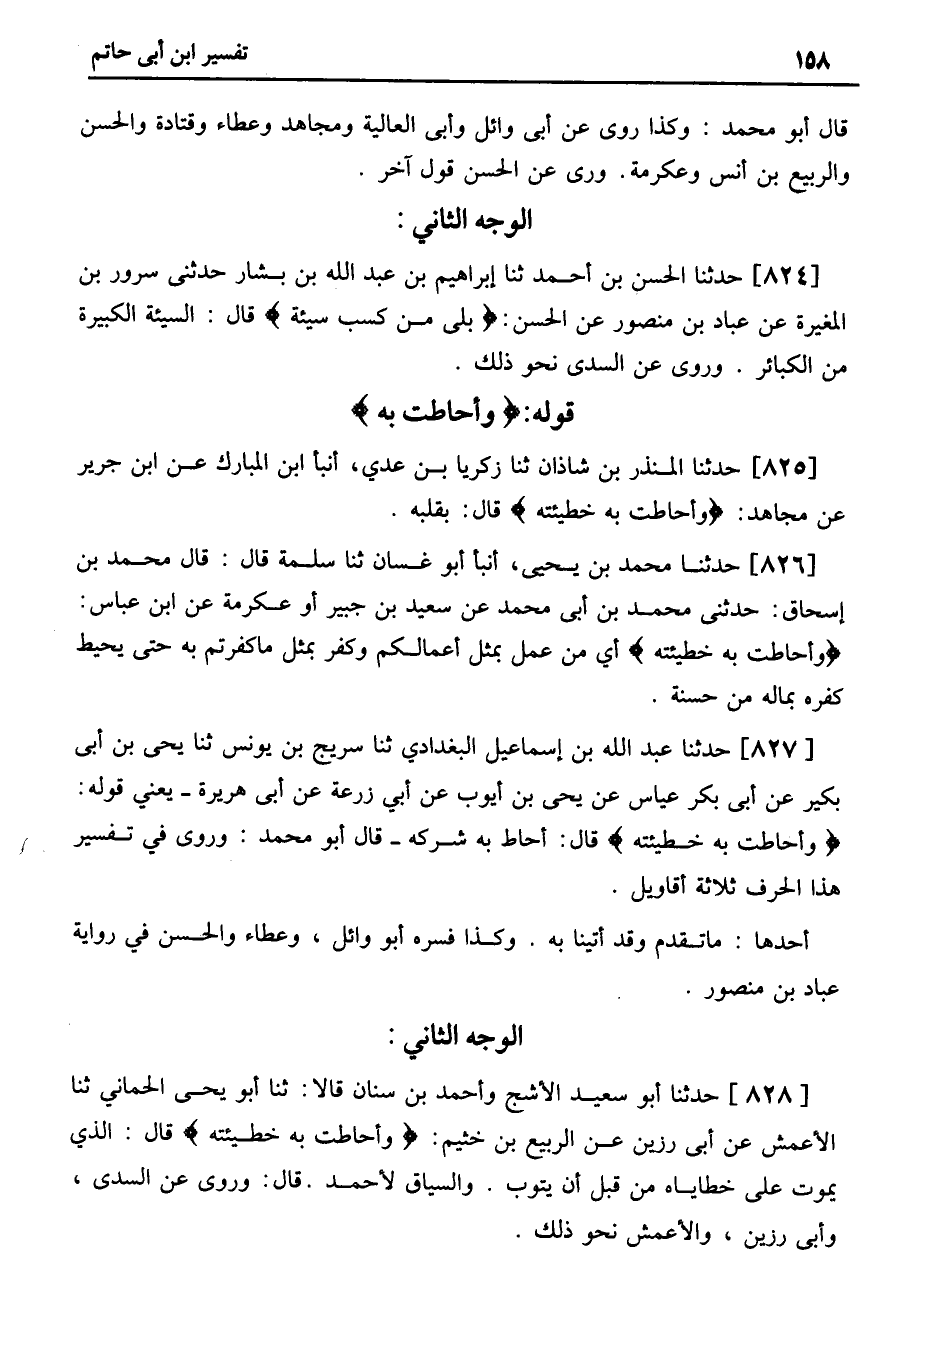 ١٥٨ تفسير ابن أبى حاتم
قال أبو محمد : وكذا روى عن أبى وائل وأبى العالية ومجاهد وعطاء وقتادة والحسن
والربيع بن أنس وعكرمة. ورى عن الحسن قول آخر .
الوجه الثاني :
[٨٢٤] حدثنا الحسن بن أحمد ثنا إبراهيم بن عبد الله بن بشار حدثنى سرور بن
المغيرة عن عباد بن منصور عن الحسن: ﴿ بلى من كسب سيئة ﴾ قال : السيئة الكبيرة
من الكبائر . وروى عن السدى نحو ذلك .
قوله: ﴿ وأحاطت به ﴾
[٨٢٥] حدثنا المنذر بن شاذان ثنا زكريا بن عدي، أنبأ ابن المبارك عن ابن جرير
عن مجاهد: ﴿وأحاطت به خطيئته ﴾ قال: بقلبه .
[٨٢٦] حدثنا محمد بن يحيى، أنبأ أبو غسان ثنا سلمة قال : قال محمد بن
إسحاق: حدثنى محمد بن أبى محمد عن سعيد بن جبير أو عكرمة عن ابن عباس:
﴿وأحاطت به خطيئته ﴾ أي من عمل بمثل أعمالكم وكفر بمثل ماكفرتم به حتى يحيط
كفره بماله من حسنة .
[٨٢٧] حدثنا عبد الله بن إسماعيل البغدادي ثنا سريج بن يونس ثنا يحى بن أبى
بكير عن أبى بكر عياس عن يحى بن أيوب عن أبي زرعة عن أبى هريرة ـ يعني قوله:
﴿ وأحاطت به خطيئته ﴾ قال: أحاط به شركه ـ قال أبو محمد : وروى في تفسير
هذا الحرف ثلاثة أقاويل .
أحدها : ماتقدم وقد أتينا به . وكذا فسره أبو وائل ، وعطاء والحسن في رواية
عباد بن منصور .
الوجه الثاني :
[٨٢٨] حدثنا أبو سعيد الأشج وأحمد بن سنان قالا: ثنا أبو يحى الحماني ثنا
الأعمش عن أبى رزين عن الربيع بن خثيم: ﴿ وأحاطت به خطيئته ﴾ قال : الذي
يموت على خطاياه من قبل أن يتوب . والسياق لأحمد .قال: وروى عن السدى ،
وأبى رزين ، والأعمش نحو ذلك .